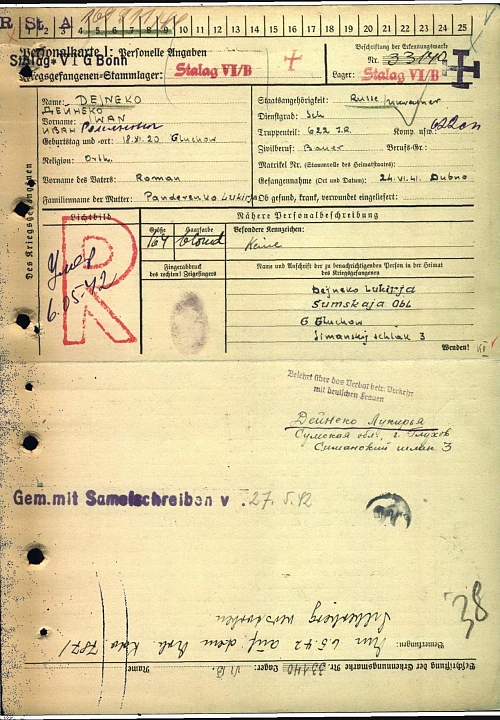 R St. A
1 2 3 4 5 6 7 8 9 10 11 12 13 14 15 16 17 18 19 20 21 22 23 24 25
Personalkarte I: Personelle Angaben
Stalag VI G Bonn
Kriegsgefangenen-Stammlager: Stalag VI/B
Beschriftung der Erkennungsmarke
Nr. 33140
Lager: Stalag VI/B
Des Kriegsgefangenen
Name: DEJNEKO
ДЕЙНЕКО
Vorname: IWAN
ИВАН
Geburtstag und -ort: 18.VI.20 Gluchow
Religion: Orth.
Vorname des Vaters: Roman
Familienname der Mutter: Panderenko Lukirja
Staatsangehörigkeit: Russe
Dienstgrad: Sch
Truppenteil: 622 I.R. Komp. usw.:
Zivilberuf: Bauer Berufs-Gr.:
Matrikel Nr. (Stammrolle des Heimatstaates):
Gefangennahme (Ort und Datum): 24.VI.41. Dubno
Ob gesund, krank, verwundet eingeliefert:
Lichtbild
R
Умер
6.05.42
Nähere Personalbeschreibung
Größe Haarfarbe Besondere Kennzeichen:
164 blond Keine
Fingerabdruck
des rechten! Zeigefingers
Name und Anschrift der zu benachrichtigenden Person in der Heimat
des Kriegsgefangenen
Dejneko Lukirja
Sumskaja Obl
G Gluchow
Simanskij schlak 3
Wenden!
Belehrt über das Verbot betr. Verkehr
mit deutschen Frauen
Дейнеко Лукирья
Сумская обл, г. Глухов
Симанский шлак 3
Gem. mit Samelschreiben v 27.5.42
38
Bemerkungen: Am 6.5.42 auf dem Arb. Kdo 787
verstorben
Beschriftung der Erkennungsmarke Nr. 33140 Lager: VI B Name: